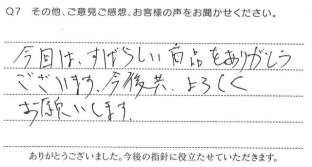 Q7 その他、ご意見ご感想、お客様の声をお聞かせください。
今回は、すばらしい商品をありがとう
ございます。今後共、よろしく
お願いします。
ありがとうございました。今後の指針に役立たせていただきます。